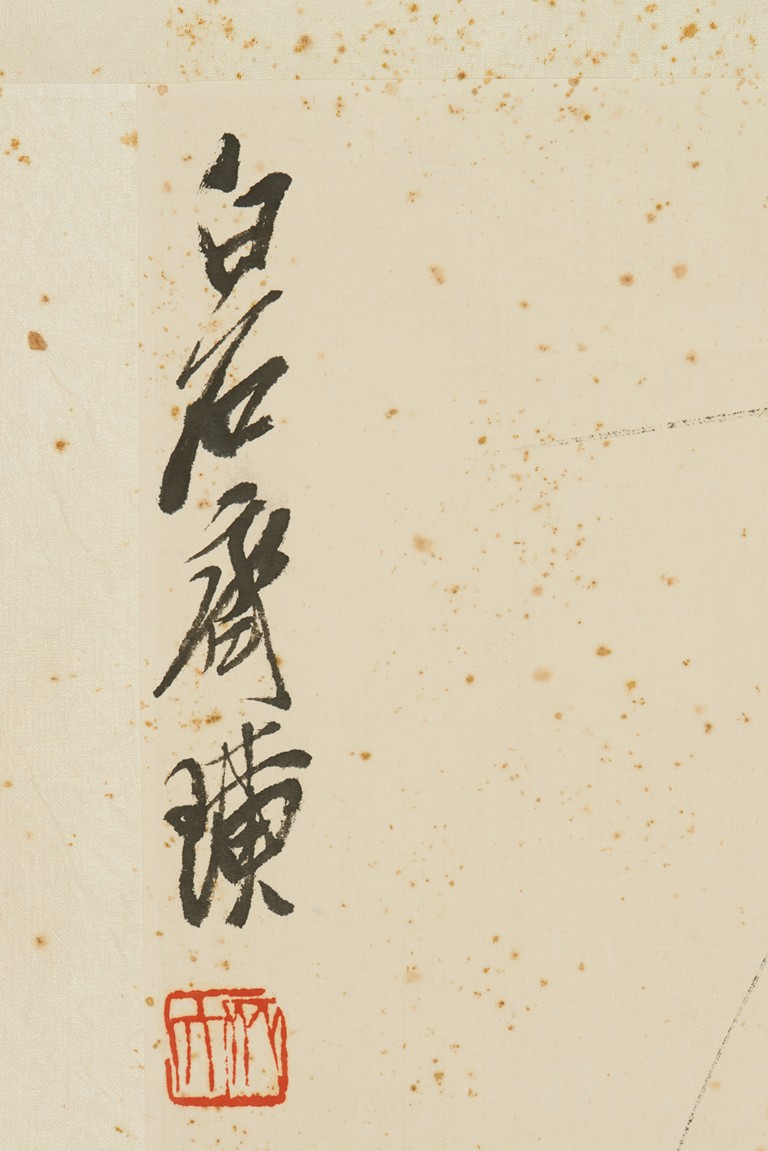 白石齊璜